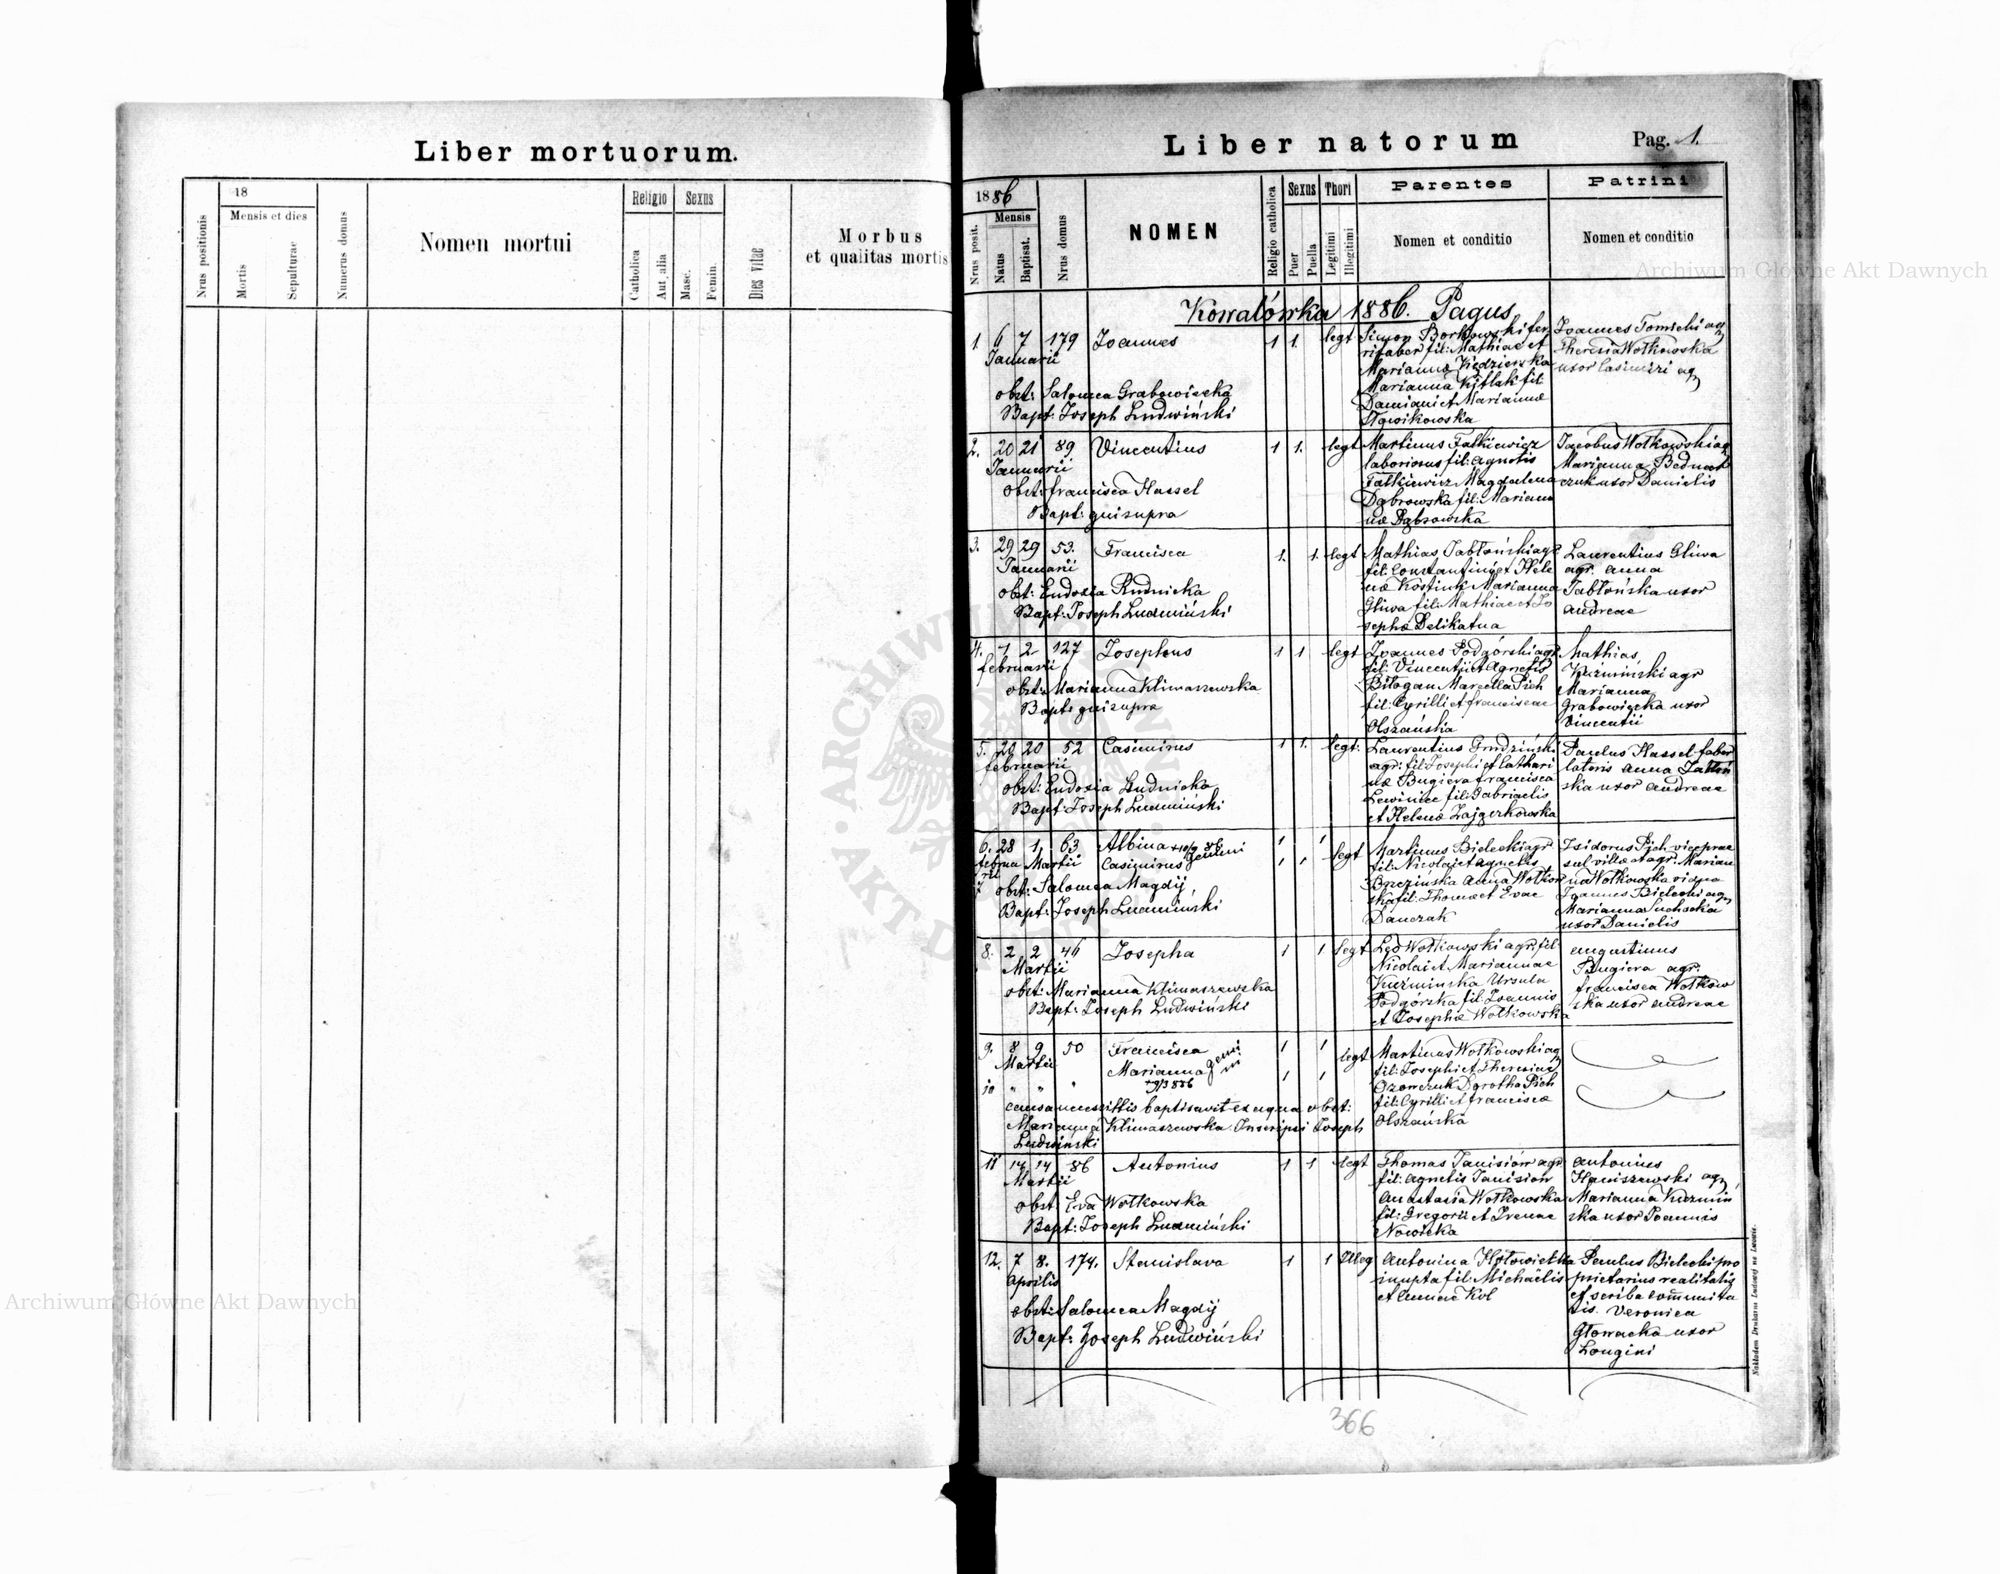 Liber mortuorum.
Nrus positionis
18
Mensis et dies
Mortis
Sepulturae
Numerus domus
Nomen mortui
Religio
Catholica
Aut. alia
Sexus
Masc.
Femin.
Dies vitae
Morbus
et qualitas mortis
Liber natorum
Pag. 1.
1886
Nrus posit.
Mensis
Natus
Baptisat.
Nrus domus
NOMEN
Religio catholica
Sexus
Puer
Puella
Thori
Legitimi
Illegitimi
Parentes
Nomen et conditio
Patrini
Nomen et conditio
Kowalówka 1886. Pagus
1. 6 7 179 Joannes 1 1. legt
Januarii
obst: Salomea Grabowiecka
Bapt: Joseph Ludwiński
Simon Borkowski fer
rifaber fil: Mathiae et
Marianna Kijtlak fil:
Damiani et Mariannæ
Joannes Tomicki agr
Theresia Wołkowska
uxor Casimiri agr
2. 20 21 89 Vincentius 1 1. legt
Januarii
obst: Francisca Hassel
Bapt: qui supra
Martinus Fałkiewicz
laboriosus fil: Agnetis
Fałkiewicz Magdalena
Dąbrowska fil: Marian
næ Dąbrowska
Jacobus Wołkowski agr
Marianna Bednar
czuk uxor Danielis
3. 29 29 53. Francisca 1. 1. legt
Januarii
obst: Eudoxia Rudnicka
Bapt: Joseph Ludwiński
Mathias Jabłoński agr
fil: Constantini et Hele
næ Kostiuk Marianna
Gliwa fil: Mathiae et Jo
sephæ Delikatna
Laurentius Gliwa
agr. Anna
Jabłońska uxor
Andreae
4. 1 2 127 Josephus 1 1 legt
februarii
obst: Marianna Klimaszewska
Bapt: qui supra
Joannes Podgórski agr
fil: Vincentii et Agnetis
Biłogan Marcella Pich
fil: Cyrilli et Franciscae
Olszańska
Mathias
Kuźmiński agr
Marianna
Grabowiecka uxor
Vincentii
5. 20 20 52 Casimirus 1 1. legt:
februarii
obst: Eudoxia Rudnicka
Bapt: Joseph Ludwiński
Laurentius Grudziński
agr: fil: Josephi et Cathari
næ Bugiera Francisca
fil: Gabrielis
et Helenæ Zajgerkowska
Paulus Hassel faber
Anna Jabłoń
ska uxor Andreae
6. 28 1. 63 Albina 1 1
februa Martii Casimirus gemini 1 1 legt
rii
7 obst: Salomea Magdij
Bapt: Joseph Ludwiński
Martinus Bielecki agr
fil: Nicolai et Agnetis
Brzezińska Anna Wołkow
ska fil: Thomæ et Evae
Danczak
Isidorus Pich viceprae
sul villæ et agr. Marian
na Wołkowska vidua
Joannes Bielecki agr
Marianna Suchecka
uxor Danielis
8. 2 2 46 Josepha 1 1 legt
Martii
obst: Marianna Klimaszewska
Bapt: Joseph Ludwiński
Leo Wołkowski agr. fil:
Nicolai et Mariannae
Kuźmińska Ursula
Podgórska fil: Joannis
et Josephæ Wołkowska
Augustinus
Bugiera agr.
Francisca Wołkow
ska uxor Andreae
9. 8 9 50 Francisca 1 1 legt
Martii Marianna gemi
ni 1 1
10 " " " +9/3 886
causa necessitatis baptisavit ex aqua obst:
Marianna Klimaszewska Inscripsi Joseph
Ludwiński
Martinus Wołkowski agr
fil: Josephi et Theresiae
Dorotha Pich
fil: Cyrilli et Franciscæ
Olszańska
11 14 14 86 Antonius 1 1 legt
Martii
obst: Eva Wołkowska
Bapt: Joseph Ludwiński
Thomas Janisiów agr
fil: Agnetis Janisiów
Anastasia Wołkowska
fil: Gregorii et Irenae
Nowicka
Antonius
Haniszewski agr
Marianna Kuźmiń
ska uxor Joannis
12. 7 8. 174. Stanislava 1 1 Illeg
Aprilis
obst: Salomea Magdij
Bapt: Joseph Ludwiński
Antonina Hołowiecka
inupta fil: Michaëlis
et Annae Kol
Paulus Bielecki pro
prietarius realitatis
et scriba communita
tis. Veronica
Głowacka uxor
Longini
366
Nakładem Drukarni Ludowej we Lwowie.
Archiwum Główne Akt Dawnych
Archiwum Główne Akt Dawnych
ARCHIWUM GŁÓWNE AKT DAWNYCH